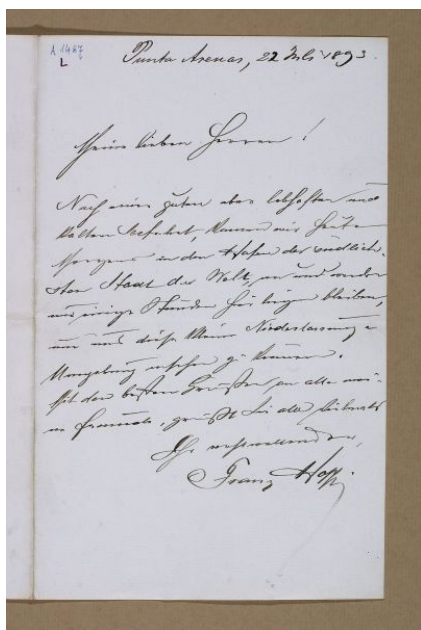 A 1487
L
Punta Arenas, 22 Juli 1893.
Meine lieben Herren!
Nach einer guten aber lebhaften und
kalten Seefahrt, kamen wir heute
Morgens in den Hafen der südlich-
sten Stadt der Welt, an und werden
uns einige Stunden hier liegen bleiben,
um uns diese kleine Niederlassung u
Umgebung ansehen zu können.
Mit den besten Grüßen an alle mei-
ne Freunde, grüßt Sie alle
Ihr
Franz